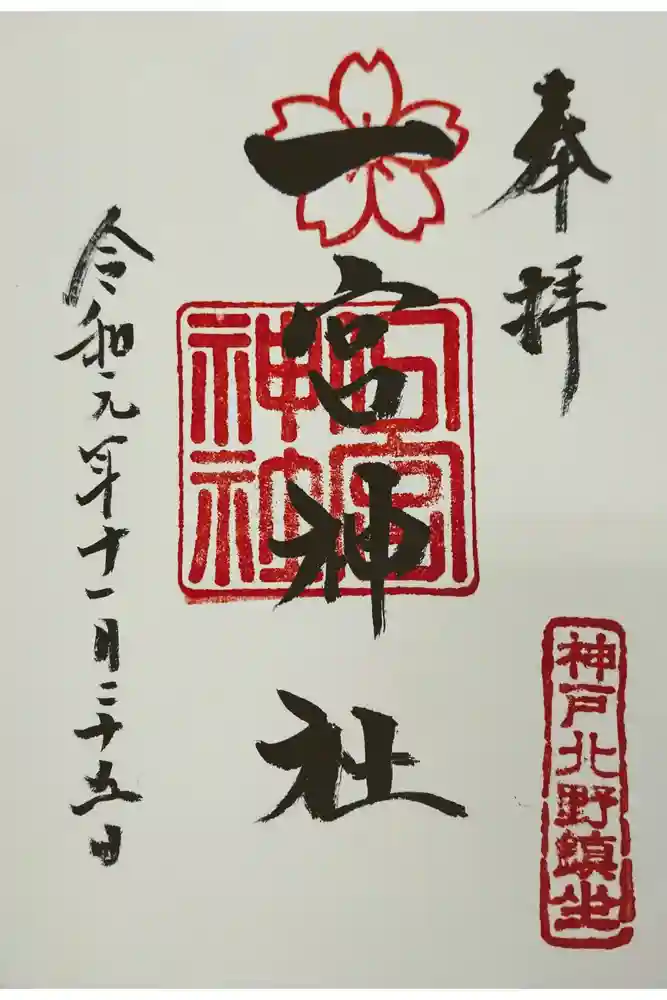 奉拝
一宮神社
神戸北野鎮坐
令和元年十一月二十五日